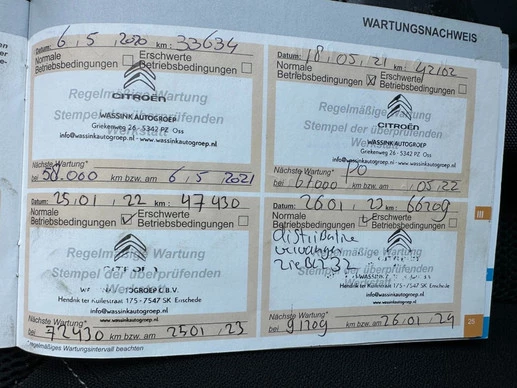 WARTUNGSNACHWEIS
Datum: 6,5 2020 km: 33634
Normale Betriebsbedingungen
Erschwerte Betriebsbedingungen
Regelmäßige Wartung
Stempel der überprüfenden
Werkstatt
CITROËN
WASSINK AUTOGROEP
Griekenweg 26 - 5342 PZ Oss
info@wassinkautogroep.nl - www.wassinkautogroep.nl
Nächste Wartung*
bei 50.000 km bzw. am 6,5 2021
Datum: 18,05,21 km: 42102
Normale Betriebsbedingungen
Erschwerte Betriebsbedingungen
Regelmäßige Wartung
Stempel der überprüfenden
Werkstatt
CITROËN
WASSINK AUTOGROEP
Griekenweg 26 - 5342 PZ Oss
info@wassinkautogroep.nl - www.wassinkautogroep.nl
Nächste Wartung*
bei 67000 km bzw. am 05,22
Datum: 25,01,22 km: 47430
Normale Betriebsbedingungen
Erschwerte Betriebsbedingungen
Regelmäßige Wartung
Stempel der überprüfenden
Werkstatt
Hendrik ter Kuilestraat 175 - 7547 SK Enschede
info@wassinkautogroep.nl
www.wassinkautogroep.nl
Nächste Wartung*
bei 72430 km bzw. am 25,01,23
Datum: 26,01,23 km: 66209
Normale Betriebsbedingungen
Erschwerte Betriebsbedingungen
distributie
Regelmäßige Wartung
Stempel der überprüfenden
Hendrik ter Kuilestraat 175 - 7547 SK Enschede
info@wassinkautogroep.nl
www.wassinkautogroep.nl
Nächste Wartung*
bei 91209 km bzw. am 26,01,24
* regelmäßiges Wartungsintervall beachten
III
25